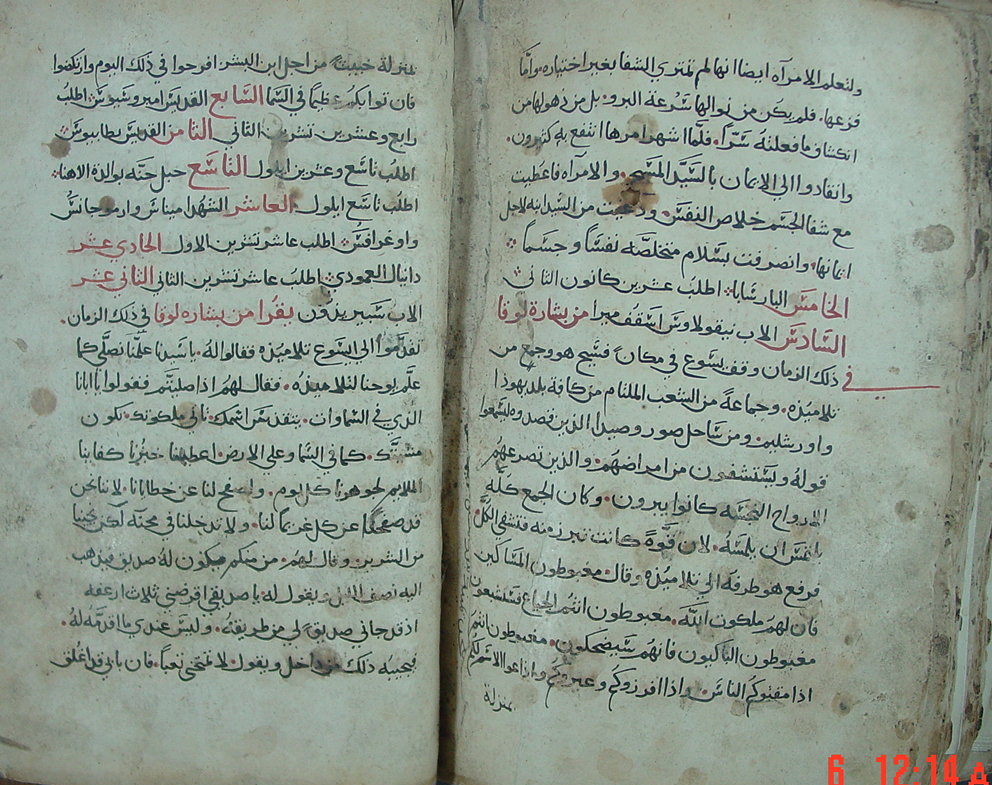 ولتعلم الامرآه ايضا انها لم تمتري الشفا بغير اختياره واما
فزعها. فلم يكن من نوالها سرعة البرو. بل من ذهولها من
انكشاف ما فعلته سرًّا. فلما اشهر امرها انتفع به كثيرون.
وانقادوا الى الايمان بالسيد المسيح. والامرآه فاعطيت
مع شفا الجسم خلاص النفس. ودعيت من السيد ابنه لاجل
ايمانها. وانصرفت بسلام متخلصه نفسًا وجسمًا
الخامس البار شابا اطلب عشرين كانون الثاني
السادس الاب نيقولاوس اسقف ميرا من بشارة لوقا
في ذلك الزمان وقف يسوع في مكان فسيح هو وجمع من
تلاميذه. وجماعة من الشعب الملتام من كافة بلد يهوذا
واورشليم. ومن ساحل صور وصيدا الذين قصدوه ليسمعوا
قوله ويستشفون من امراضهم. والذين تصرعهم
الارواح النجسه كانوا يبرون. وكان الجمع كله
يلتمس ان يلمسه. لان قوة كانت تبرز منه فتشفي الكل
فرفع هو طرفه الى تلاميذه وقال. مغبوطون المساكين
فان لهم ملكوت الله. مغبوطون انتم الجياع فستشبعون
مغبوطون الباكيون فانهم سيضحكون. مغبوطون انتم
اذا مقتوكم الناس. واذا افرزوكم وعيروكم واذاعوا الاسم لكم
بمنزلة
بمنزلة خبيث من اجل ابن البشر. افرحوا في ذلك اليوم وارتكضوا
فان ثوابكم عظيمًا في السما السابع القديس امبروسيوس اطلب
رابع وعشرين تشرين الثاني الثامن القديس بطابيوس
اطلب تاسع وعشرين ايلول التاسع حبل حنه بوالدة الاهنا
اطلب تاسع ايلول العاشر الشهدا ميناس وارموجانس
واوغرافس اطلب عاشر تشرين الاول الحادي عشر
دانيال العمودي اطلب عاشر تشرين الثاني الثاني عشر
الاب سبيريذون يقرا من بشاره لوقا في ذلك الزمان.
تقدموا الى اليسوع تلاميذه فقالوا له. يا سيدنا علمنا نصلي كما
علم يوحنا لتلاميذه. فقال لهم اذا صليتم فقولوا يا ابانا
الذي في السماوات. يتقدس اسمك. تاتي ملكوتك. تكون
مشيتك. كما في السما وعلى الارض. اعطينا خبزنا كفاينا
الملايم لجوهرنا كل يوم. واصفح لنا عن خطايانا. لاننا نحن
قد صفحنا عن كل غريما لنا. ولا تدخلنا في محنه لكن نجينا
من الشرير. وقال لهم. من منكم ميكون له صديق فيذهب
اليه نصف الليل ويقول له. يا صديقي اقرضني ثلاث ارغفه
اذ قد جاني صديق لي من طريقه. وليس عندي ما اقدمه له.
فيجيبه ذلك من داخل ويقول. لا تمنحني تعبًا. فان بابي قد اغلق
6 12:14 A